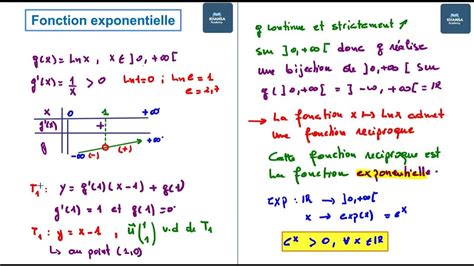 Fonction exponentielle
JNIE KHANSA
Academy
g(x) = lnx , x ∈ ]0, +∞[
g'(x) = 1/x > 0   ln1=0 ; ln e = 1
e = 2,7
x | 0 1 +∞
g'(x) | +
g | -∞ (-) (+) +∞
T₁ : y = g'(1)(x-1) + g(1)
g'(1) = 1 et g(1) = 0.
T₁ : y = x-1 , u(1 1) v.d de T₁
↳ au point (1,0)
g continue et strictement ↗
sur ]0,+∞[ donc g réalise
une bijection de ]0,+∞[ sur
g(]0,+∞[) = ]-∞, +∞[ = IR
→ La fonction x ↦ lnx admet
une fonction réciproque
Cette fonction réciproque est
la fonction exponentielle.
exp : IR → ]0,+∞[
x → exp(x) = eˣ
eˣ > 0, ∀ x ∈ IR